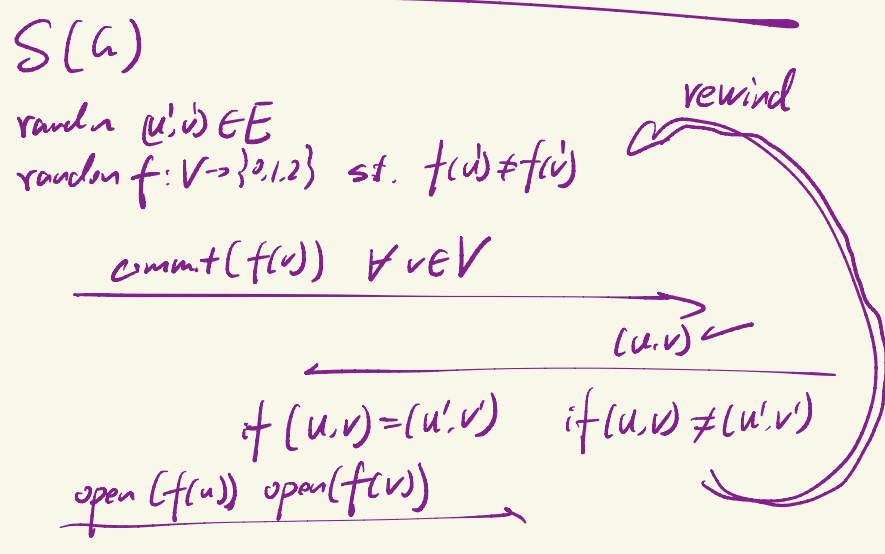 S(G)
rewind
random (u',v') ∈ E
random f: V→{0,1,2} st. f(u')≠f(v')
commit(f(v)) ∀ v∈V
(u,v)
if (u,v)=(u',v') if (u,v)≠(u',v')
open(f(u)) open(f(v))